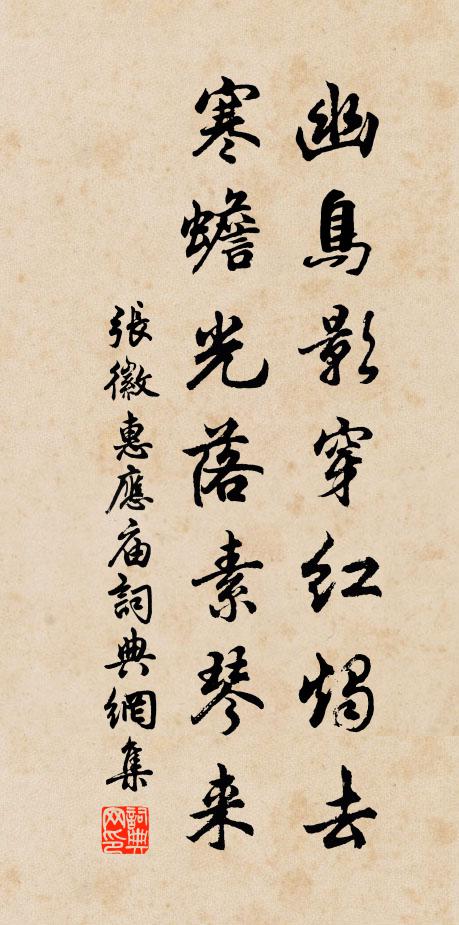 幽鳥影穿紅燭去
寒蟾光落素琴来
張徽惠應庙詞典網集
詞典网印